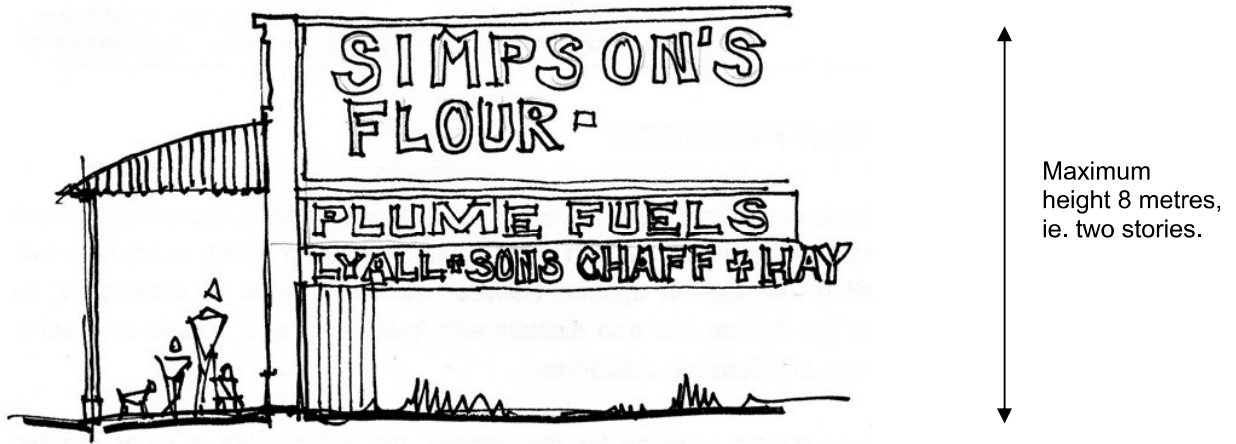 SIMPSON'S
FLOUR
PLUME FUELS
LYALL & SONS CHAFF & HAY
Maximum
height 8 metres,
ie. two stories.